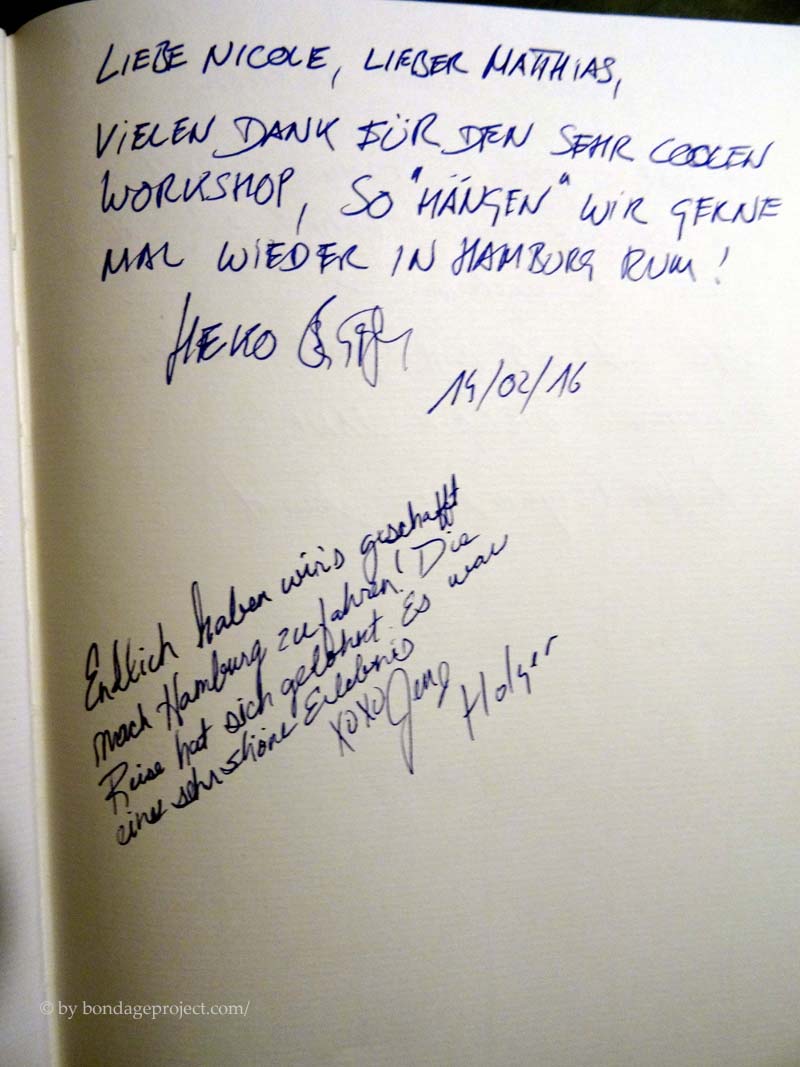 LIEBE NICOLE, LIEBER MATTHIAS,
VIELEN DANK FÜR DEN SEHR COOLEN
WORKSHOP, SO "HÄNGEN" WIR GERNE
MAL WIEDER IN HAMBURG RUM!
HEIKO
19/02/16
Endlich haben wir's geschafft
nach Hamburg zu fahren! Die
Reise hat sich gelohnt. Es war
eine sehr shöne Erlebnis
XOXO
Holger
© by bondageproject.com/